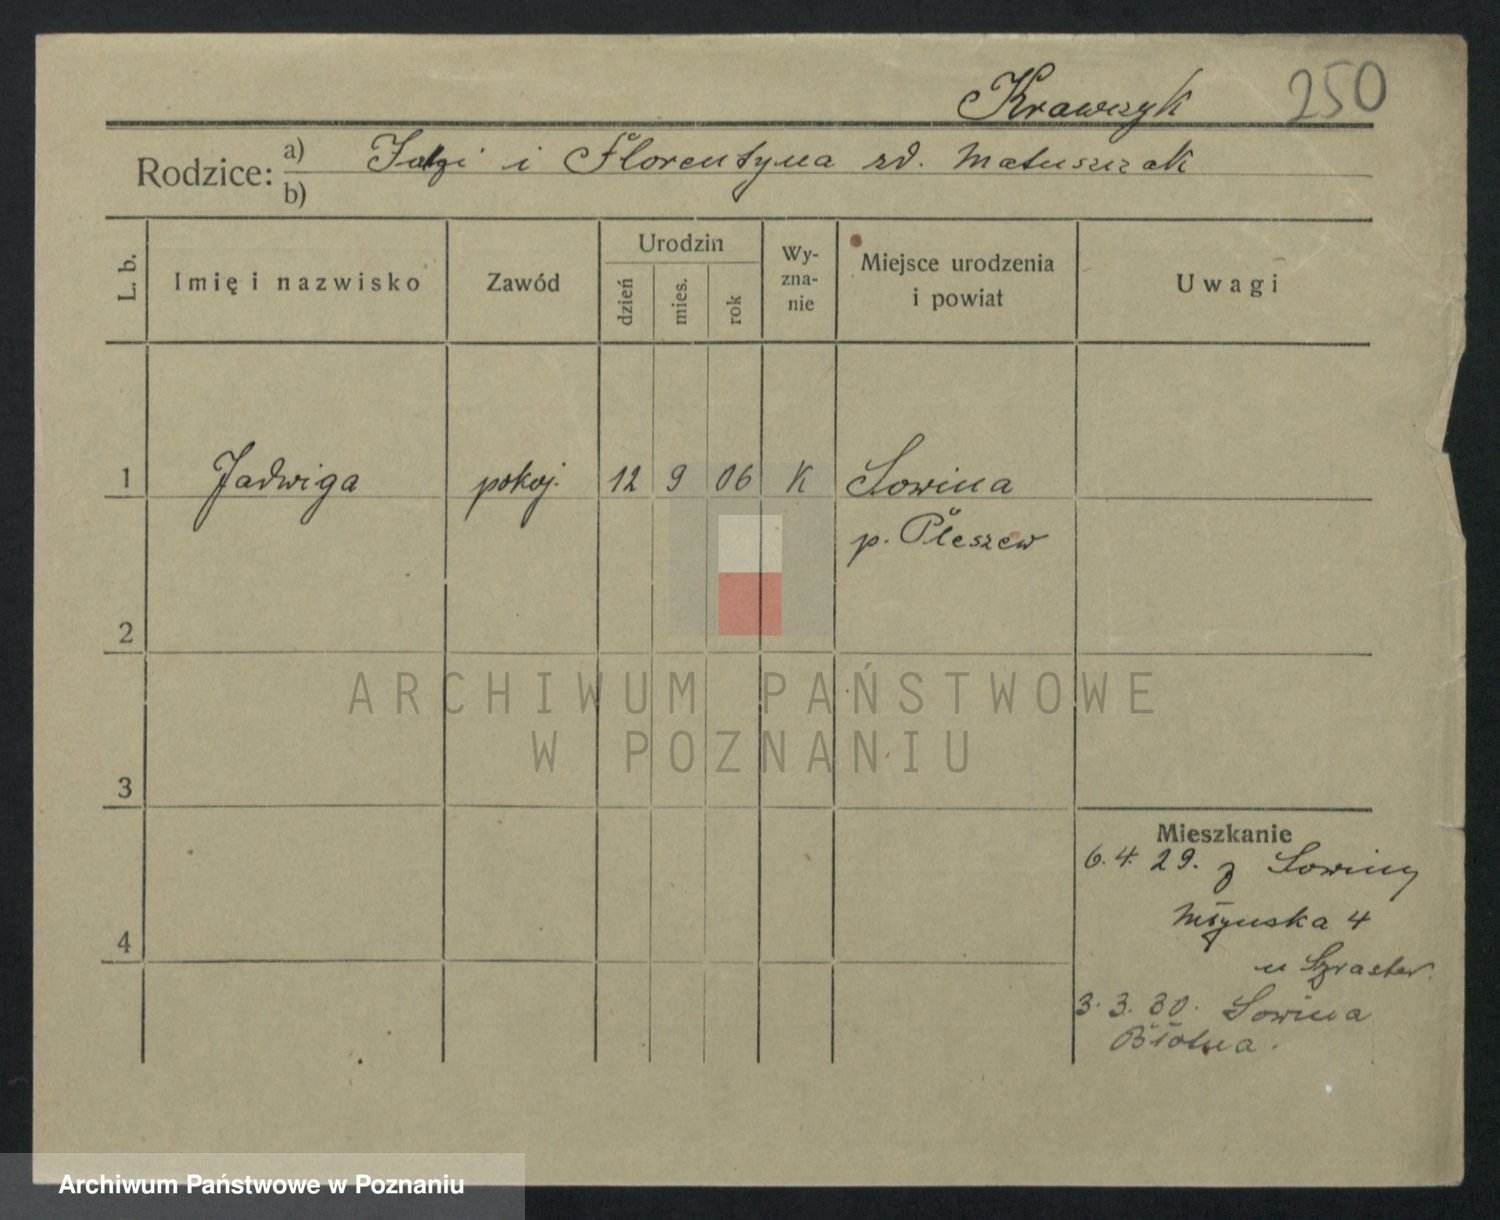 Krawczyk 250
Rodzice: a) i Florentyna zd. Matuszczak
b)
L. b. Imię i nazwisko Zawód Urodzin dzień mies. rok Wy-zna-nie Miejsce urodzenia i powiat Uwagi
1 Jadwiga pokoj. 12 9 06 K Sowina
p. Pleszew
2
ARCHIWUM PAŃSTWOWE
W POZNANIU
3
Mieszkanie
6.4.29. z Sowiny
Młyńska 4
4
u
3.3.30. Sowina
Błotna.
Archiwum Państwowe w Poznaniu